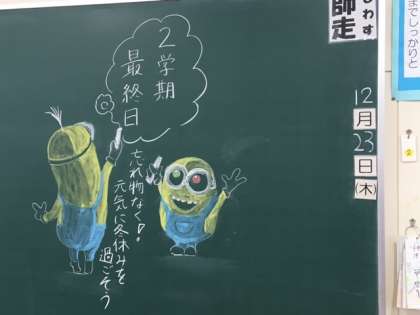 ２学期
最終日
忘れ物なく！！
元気に冬休みを
過ごそう
しわす
師走
12
月
23
日
(木)
までしっかりと